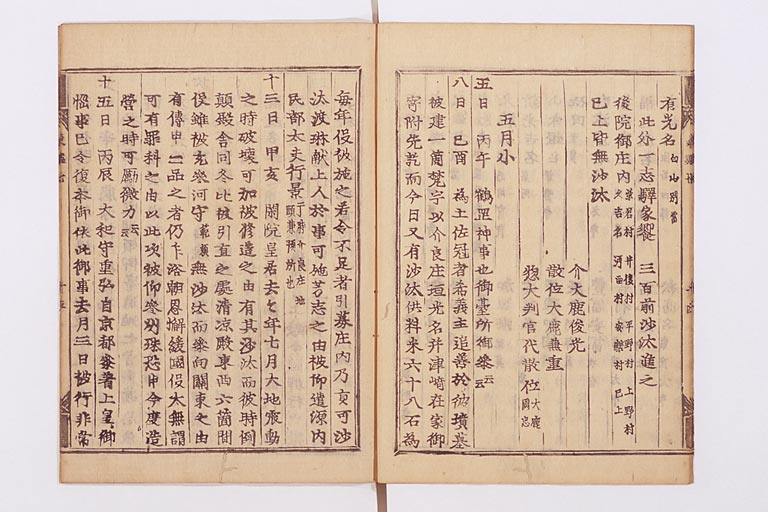 有光名 白山別當
此外一志驛家饗 三百前沙汰進之
後院御庄内 菜若名 井後村 平野村 上野村
久吉名 河西村 安樂村 已上
已上皆無沙汰
介大鹿俊光
散位大鹿兼重
惣大判官代散位 大鹿國忠
五月小
五日 丙午 鶴罡神事也御臺所御參云云
八日 己酉 為土佐冠者希義主追善於彼墳墓
被建一箇梵宇以介良庄恒光名并津崎在家御
寄附先訖而今日又有沙汰供料米六十八石為
每年役被施之若令不足者引募庄内乃貢可沙
汰渡琳猷上人於事可施芳志之由被仰遣源内
民部大夫行景 于時介良庄地頭兼預所也
十三日 甲亥 閑院皇居去々年七月大地震動
之時破壞可加被修造之由有其沙汰而彼時倒
顛殿舍同冬比被引直之處清凉殿東西六箇間
役雖被充參河守 範賴 無沙汰而參向關東之由
有傳申二品之者仍乍浴朝恩懈緩國役太無謂
可有罪科之由以此次被仰參州殊恐申今度造
營之時可勵微力云云
十五日 丙辰 大和守重弘自京都參著上皇御
惱事已令復本御依此御事去月三日被行非常